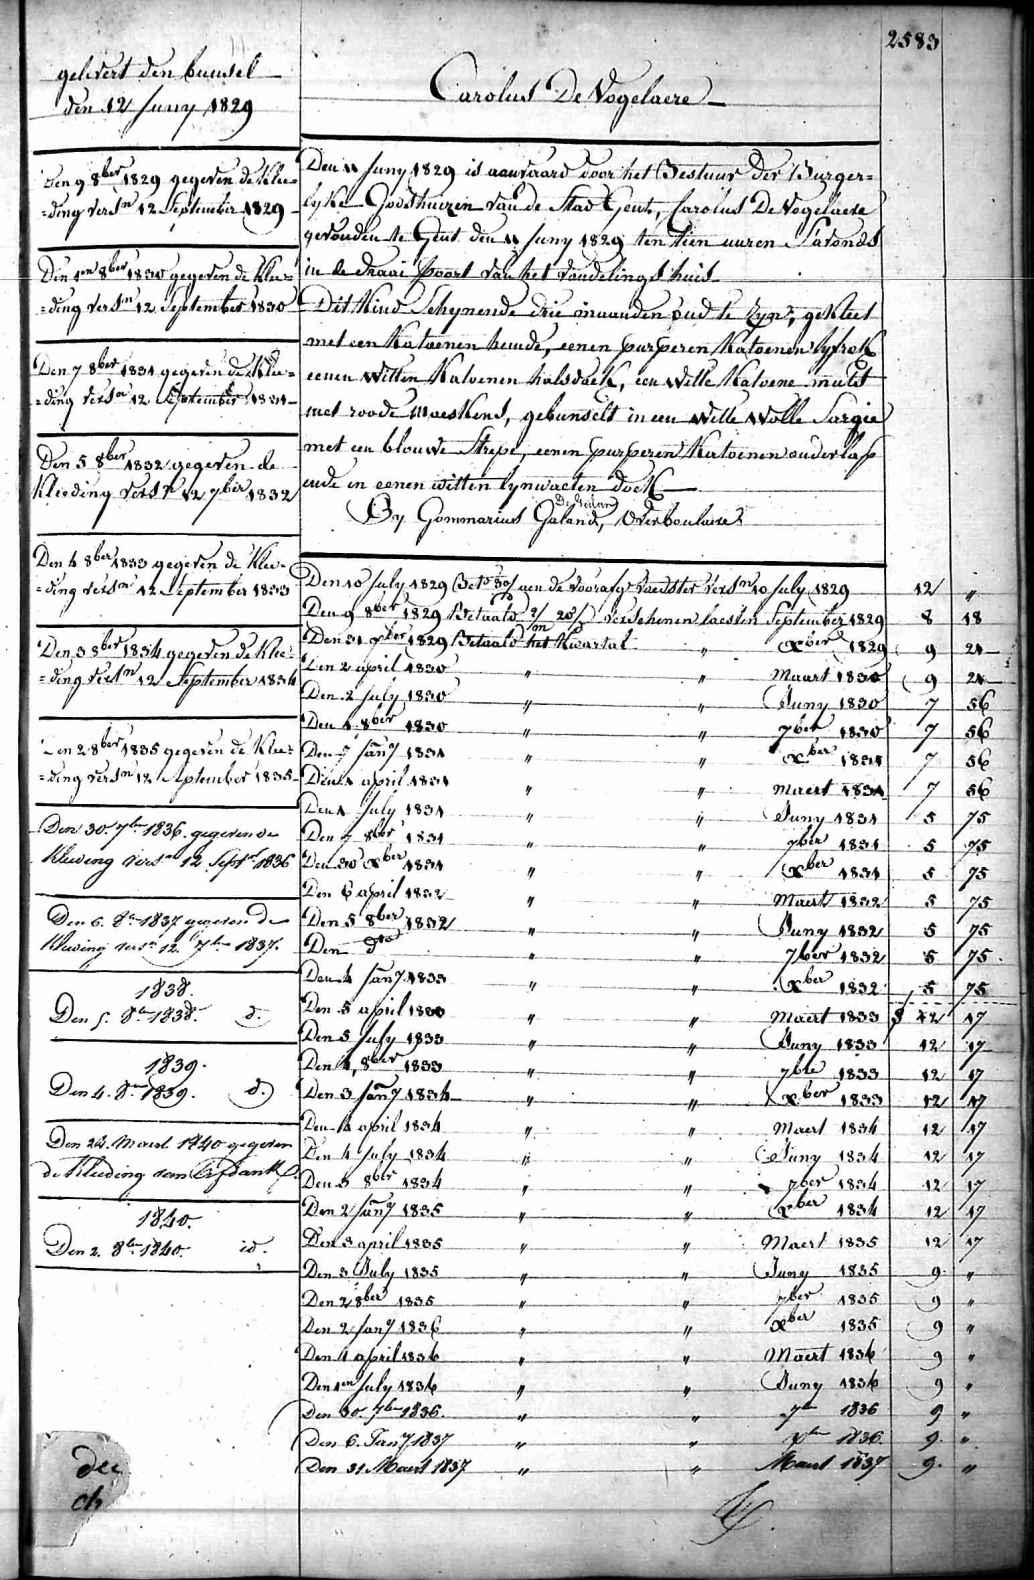 2583
gelevert den bunsel
den 12 Juny 1829
Carolus De Vogelaere
Den 9 8ber 1829 gegeven de Klee=
=ding versn 12 September 1829
Den 1en 8ber 1830 gegeven de Klee=
=ding versn 12 September 1830
Den 7 8ber 1831 gegeven de Klee=
=ding versn 12 September 1831
Den 5 8ber 1832 gegeven de
Kleeding versn 12 7ber 1832
Den 4 8ber 1833 gegeven de Klee=
=ding versn 12 September 1833
Den 3 8ber 1834 gegeven de Klee=
=ding versn 12 September 1834
Den 2 8ber 1835 gegeven de Klee=
=ding versn 12 September 1835
Den 30. 7br 1836. gegeven de
Kleeding versn 12 Septr 1836
Den 6. 8br 1837 gegeven de
Kleeding versn 12. 7br 1837.
1838.
Den 5. 8br 1838. d.
1839.
Den 4. 8br 1839. d.
Den 24. Maert 1840 gegeven
de Kleeding van
1840.
Den 2. 8br 1840. id.
Den 11 Juny 1829 is aanvaard door het Bestuur der Burger=
lyke Godshuizen van de Stad Gent, Carolus De Vogelaere
gevonden te Gent den 11 Juny 1829 ten tien uuren S'avonds
in de draai poort van het vondelings huis
Dit Kind Schynende drie maanden oud te zyn, gekleet
met een Katoenen hemde, eenen purperen Katoenen lyfrok
eenen witten Katoenen halsdoek, een witte Katoene muts
met roode moeskens, gebunselt in een witte wolle Sargie
met een blouwe Strepe, eenen purperen Katoenen onderlap
ende in eenen witten lynwaeten doek
By Gommarius Galand, Overboulaire
Den 10 July 1829 Betd aen de voorafge voedster versn 10 July 1829 12 "
Den 9 8ber 1829 Betaald verschenen laesten September 1829 8 18
Den 31 xber 1829 Betaald het Kwartal " xber 1829 9 24
Den 2 april 1830 " " Maart 1830 9 24
Den 2 July 1830 " " Juny 1830 7 56
Den 1 8ber 1830 " " 7ber 1830 7 56
Den 7 Jany 1831 " " xber 1831 7 56
Den 1 april 1831 " " Maert 1831 7 56
Den 1 July 1831 " " Juny 1831 5 75
Den 7 8ber 1831 " " 7ber 1831 5 75
Den 30 xber 1831 " " xber 1831 5 75
Den 6 april 1832 " " Maert 1832 5 75
Den 5 8ber 1832 " " Juny 1832 5 75
Den dto " " 7ber 1832 5 75
Den 4 Jany 1833 " " xber 1832 5 75
Den 5 april 1833 " " Maert 1833 12 17
Den 5 July 1833 " " Juny 1833 12 17
Den 4, 8ber 1833 " " 7bre 1833 12 17
Den 3 Jany 1834 " " xber 1833 12 17
Den 4 april 1834 " " Maert 1834 12 17
Den 4 July 1834 " " Juny 1834 12 17
Den 3 8ber 1834 " " 7ber 1834 12 17
Den 2 Jany 1835 " " xber 1834 12 17
Den 3 april 1835 " " Maert 1835 12 17
Den 3 July 1835 " " Juny 1835 9 "
Den 2 8ber 1835 " " 7ber 1835 9 "
Den 2 Jany 1836 " " xber 1835 9 "
Den 1 april 1836 " " Maert 1836 9 "
Den 1en July 1836 " " Juny 1836 9 "
Den 30. 7br 1836. " " 7br 1836 9 "
Den 6. Jany 1837 " " xbr 1836. 9. "
Den 31. Maert 1837 " " Maert 1837 9. "